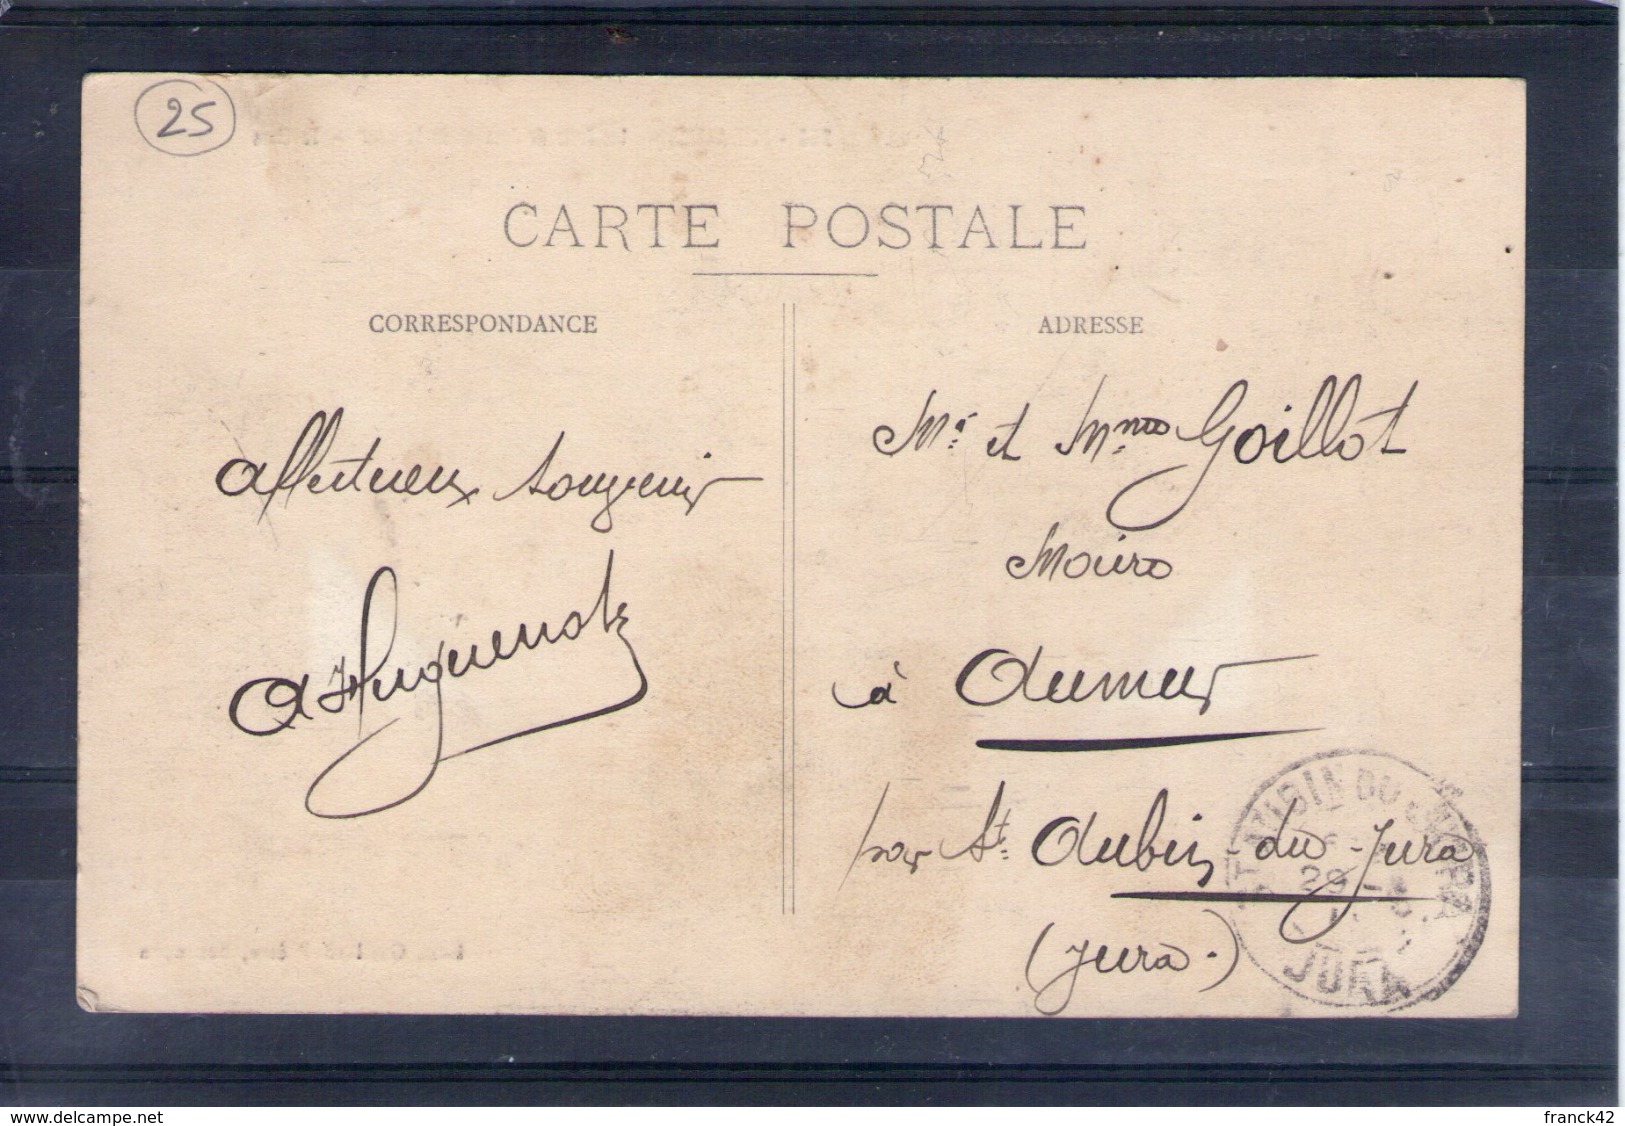 25
CARTE POSTALE
CORRESPONDANCE
ADRESSE
Affectueux souvenir
A Huguenotz
Mr et Mme Goillot
Maire
à Aumur
par St Aubin-du-Jura
(Jura.)
ST AUBIN DU JURA
29 - 5
JURA
www.delcampe.net
franck42